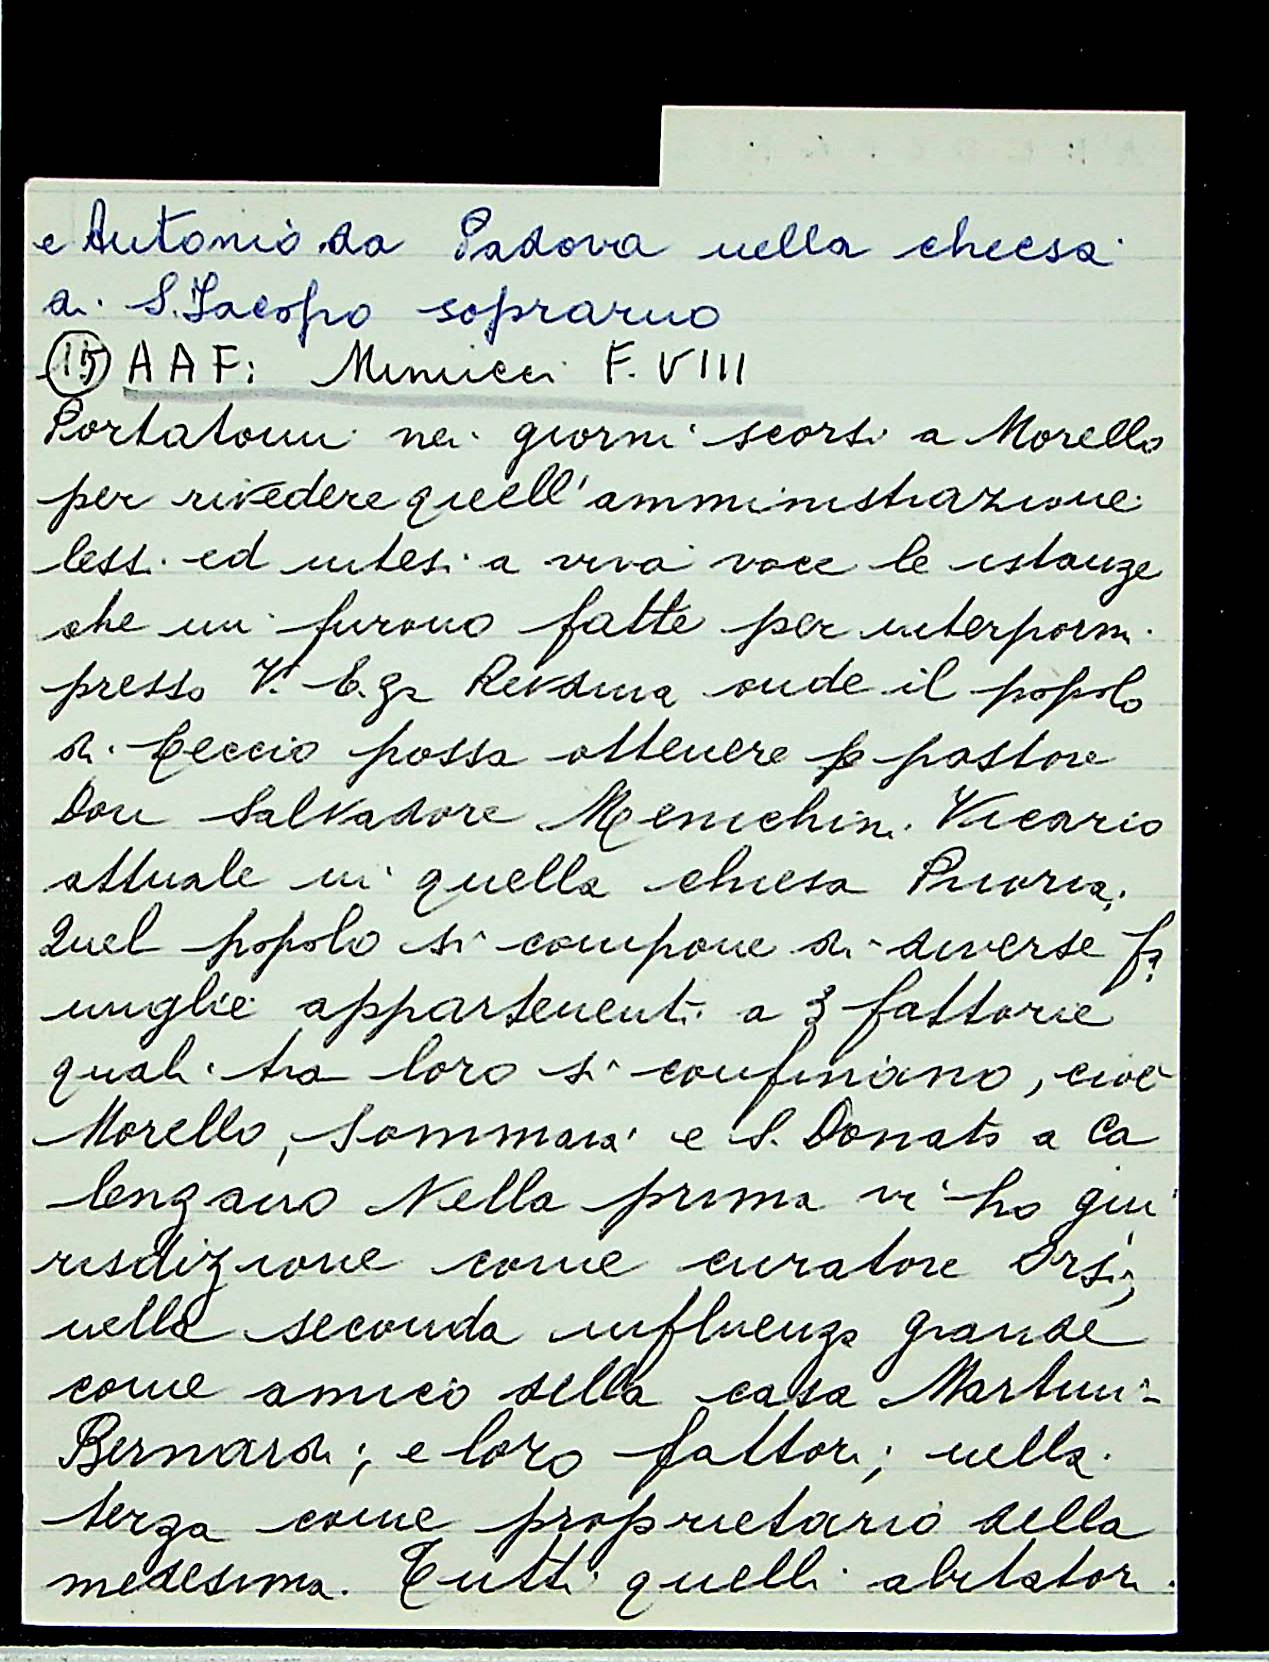 e Antonio da Padova nella chiesa
di S. Iacopo soprarno
(15) A A F: Minucci F. VIII
Portatomi nei giorni scorsi a Morello
per rivedere quell'amministrazione
lessi ed intesi a viva voce le istanze
che mi furono fatte per interpormi
presso V. E.za Rev.dma onde il popolo
di Ceccio possa ottenere pastore
Don Salvadore Menichini Vicario
attuale in quella chiesa Prioria.
Quel popolo si compone di diverse fa
miglie appartenenti a 3 fattorie
quali tra loro si confinano, cioè
Morello, Sommaia e S. Donato a Ca
lenzano Nella prima vi ho giu
risdizione come curatore Orsi,
nella seconda influenza grande
come amico della casa Martini-
Bernardi; e loro fattori; nella
terza come proprietario della
medesima. Tutti quelli abitatori